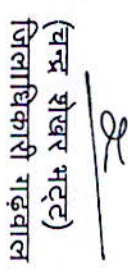 (चन्द्र शेखर भट्ट)
जिलाधिकारी गढ़वाल